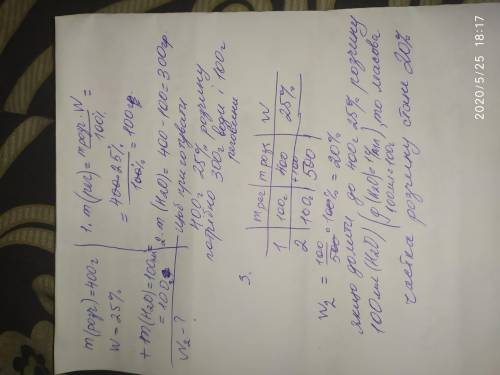 m(розч)=400г
W=25%
+ m(H2O)=100мл=
=100г
W2-?
1. m(реч)= mрозч·W / 100% =
= 400·25% / 100% = 100г
2. m(H2O)=400-100=300гр
щоб приготувати
400г 25% розчину
потрібно 300г води і 100г
речовини
3.
mреч | mрозч | W
1 | 100г | 400 | 25%
+100
2 | 100г | 500
W2 = 100 / 500 · 100% = 20%
якщо долити до 400г 25% розчину
100мл (H2O) (ρ(H2O)=1г/мл) то масова
100мл=100г
частка розчину стане 20%
2020/5/25 18:17